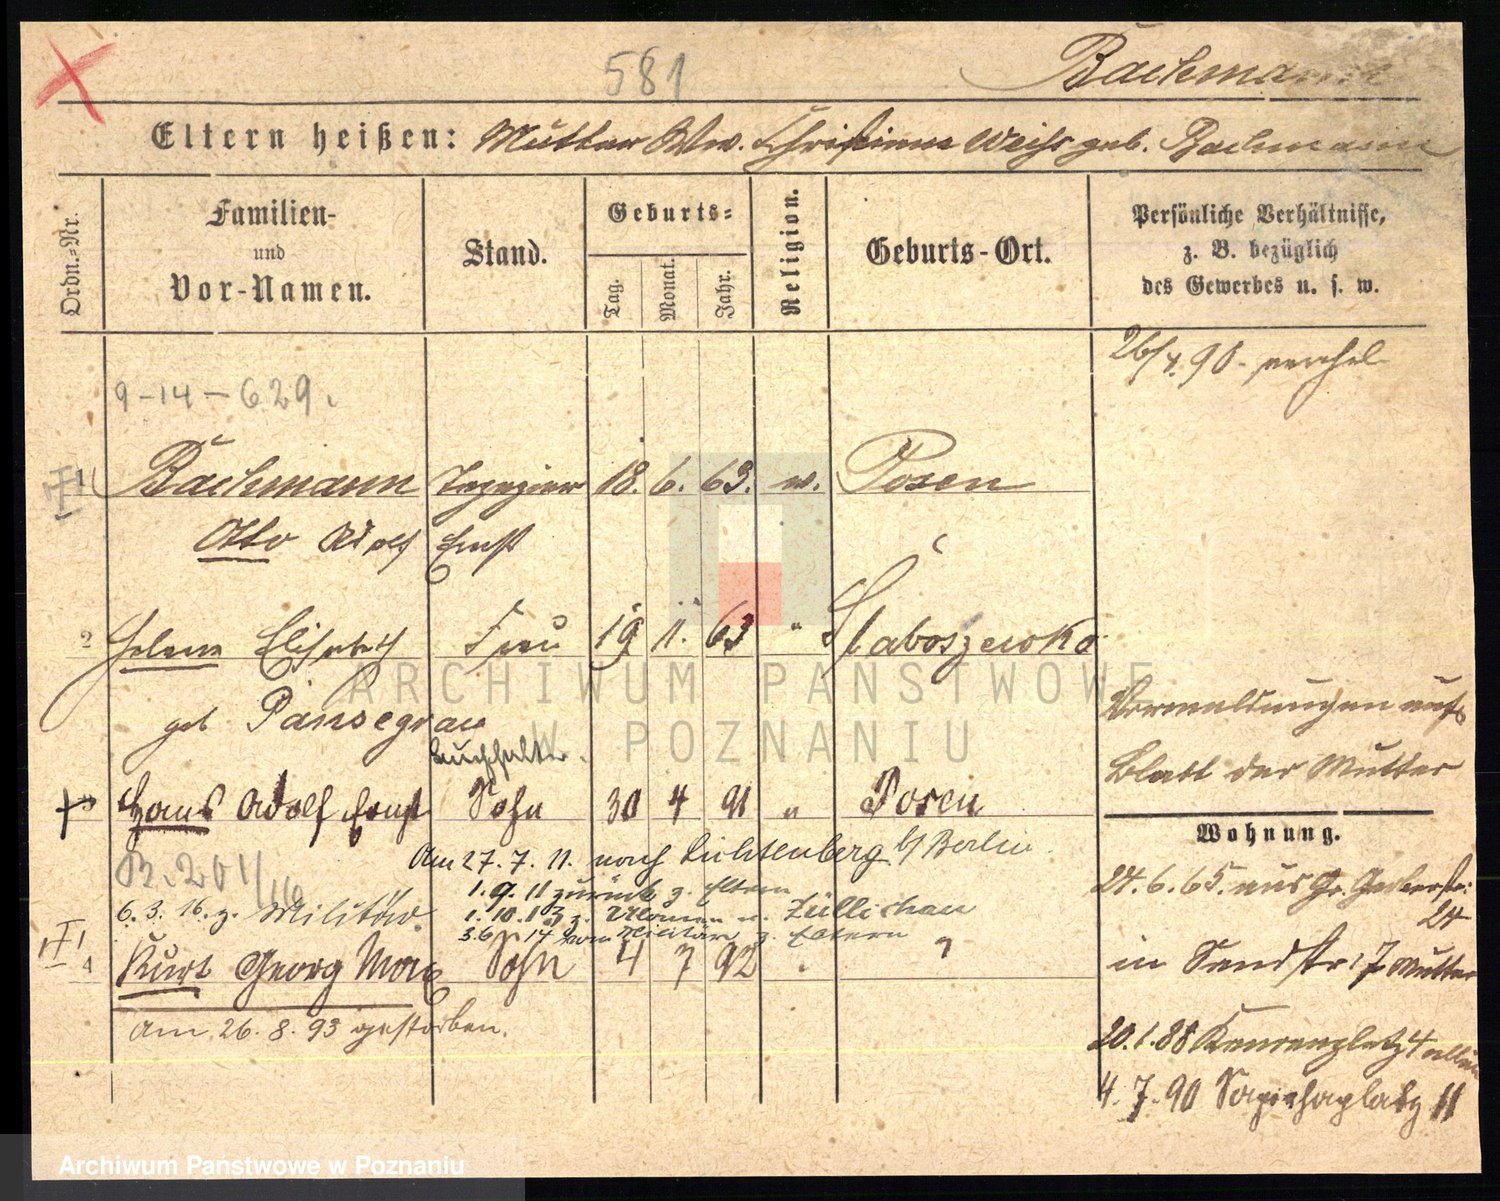 581
Bachmann
Eltern heißen: Mutter Ww. Christine Weiss geb. Bachmann
Ordn.-Nr.
Familien- und Vor-Namen.
Stand.
Geburts-
Tag.
Monat.
Jahr.
Religion.
Geburts-Ort.
Persönliche Verhältnisse, z. B. bezüglich des Gewerbes u. s. w.
26/4.90.
9-14-629.
1 Bachmann Tapezier 18. 6. 63. ev. Posen
Otto Adolf Ernst
2 Helene Elisabeth Frau 19 11. 63 " Slaboszewko
geb Pansegrau
Vermeldungen aufs
Blatt der Mutter
Buchhalter.
Hans Adolf Ernst Sohn 30 4 91 " Posen
Wohnung.
Am 27. 7. 11. nach Lichtenberg b/Berlin.
B. 201/16
1.9.11 zurück z. Eltern
6. 3. 16. z. Militär.
1.10.13 z. Ulanen n. Züllichau
3.6.14 vom Militär z. Eltern
4 Kurt Georg Max Sohn 4 7 92 "
Am 26. 8. 93 gestorben.
24. 6. 65. aus Gr. Gerberstr. 24
in Sandstr. 7 Mutter
20.1.88 Kanonenplatz 4 allein
4. 7. 90 Sapiehaplatz 11
ARCHIWUM PAŃSTWOWE
W POZNANIU
Archiwum Państwowe w Poznaniu